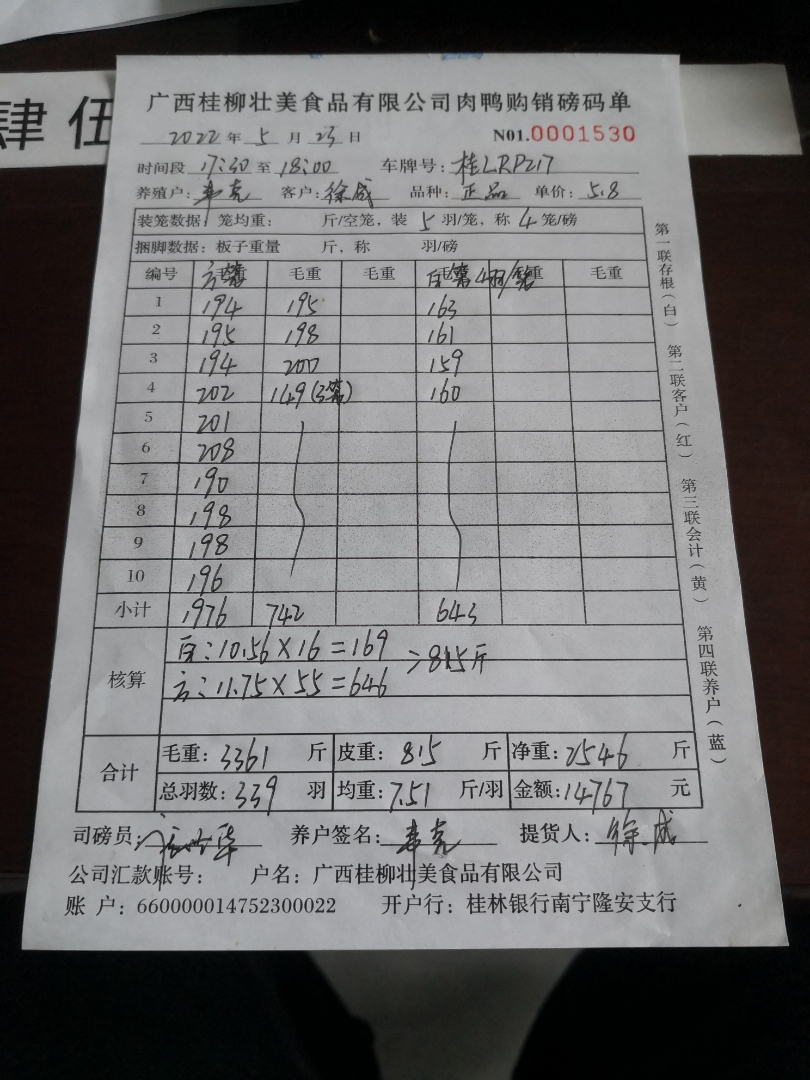 肆 伍
广西桂柳壮美食品有限公司肉鸭购销磅码单
2022 年 5 月 23 日 N01.0001530
时间段 17:30 至 18:00 车牌号: 桂LRP217
养殖户: 韦克 客户: 徐成 品种: 正品 单价: 5.8
装笼数据: 笼均重: 斤/空笼, 装 5 羽/笼, 称 4 笼/磅
捆脚数据: 板子重量 斤, 称 羽/磅
编号 方笼 毛重 毛重 白笼4羽/笼 毛重 毛重
1 194 195 163
2 195 198 161
3 194 200 159
4 202 149(3笼) 160
5 201
6 208
7 190
8 198
9 198
10 196
小计 1976 742 643
核算
白: 10.56×16=169
>815斤
方: 11.75×55=646
合计
毛重: 3361 斤 皮重: 815 斤 净重: 2546 斤
总羽数: 339 羽 均重: 7.51 斤/羽 金额: 14767 元
司磅员: 养户签名: 韦克 提货人: 徐成
公司汇款账号: 户名: 广西桂柳壮美食品有限公司
账 户: 660000014752300022 开户行: 桂林银行南宁隆安支行
第一联存根(白) 第二联客户(红) 第三联会计(黄) 第四联养户(蓝)